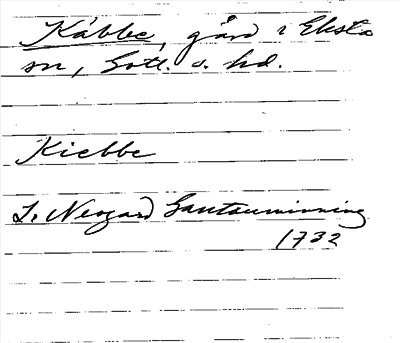 Käbbe, gård i Eksta
sn, Gotl. s. hd.
Kiebbe
J. Neogard Gautauminning
1732